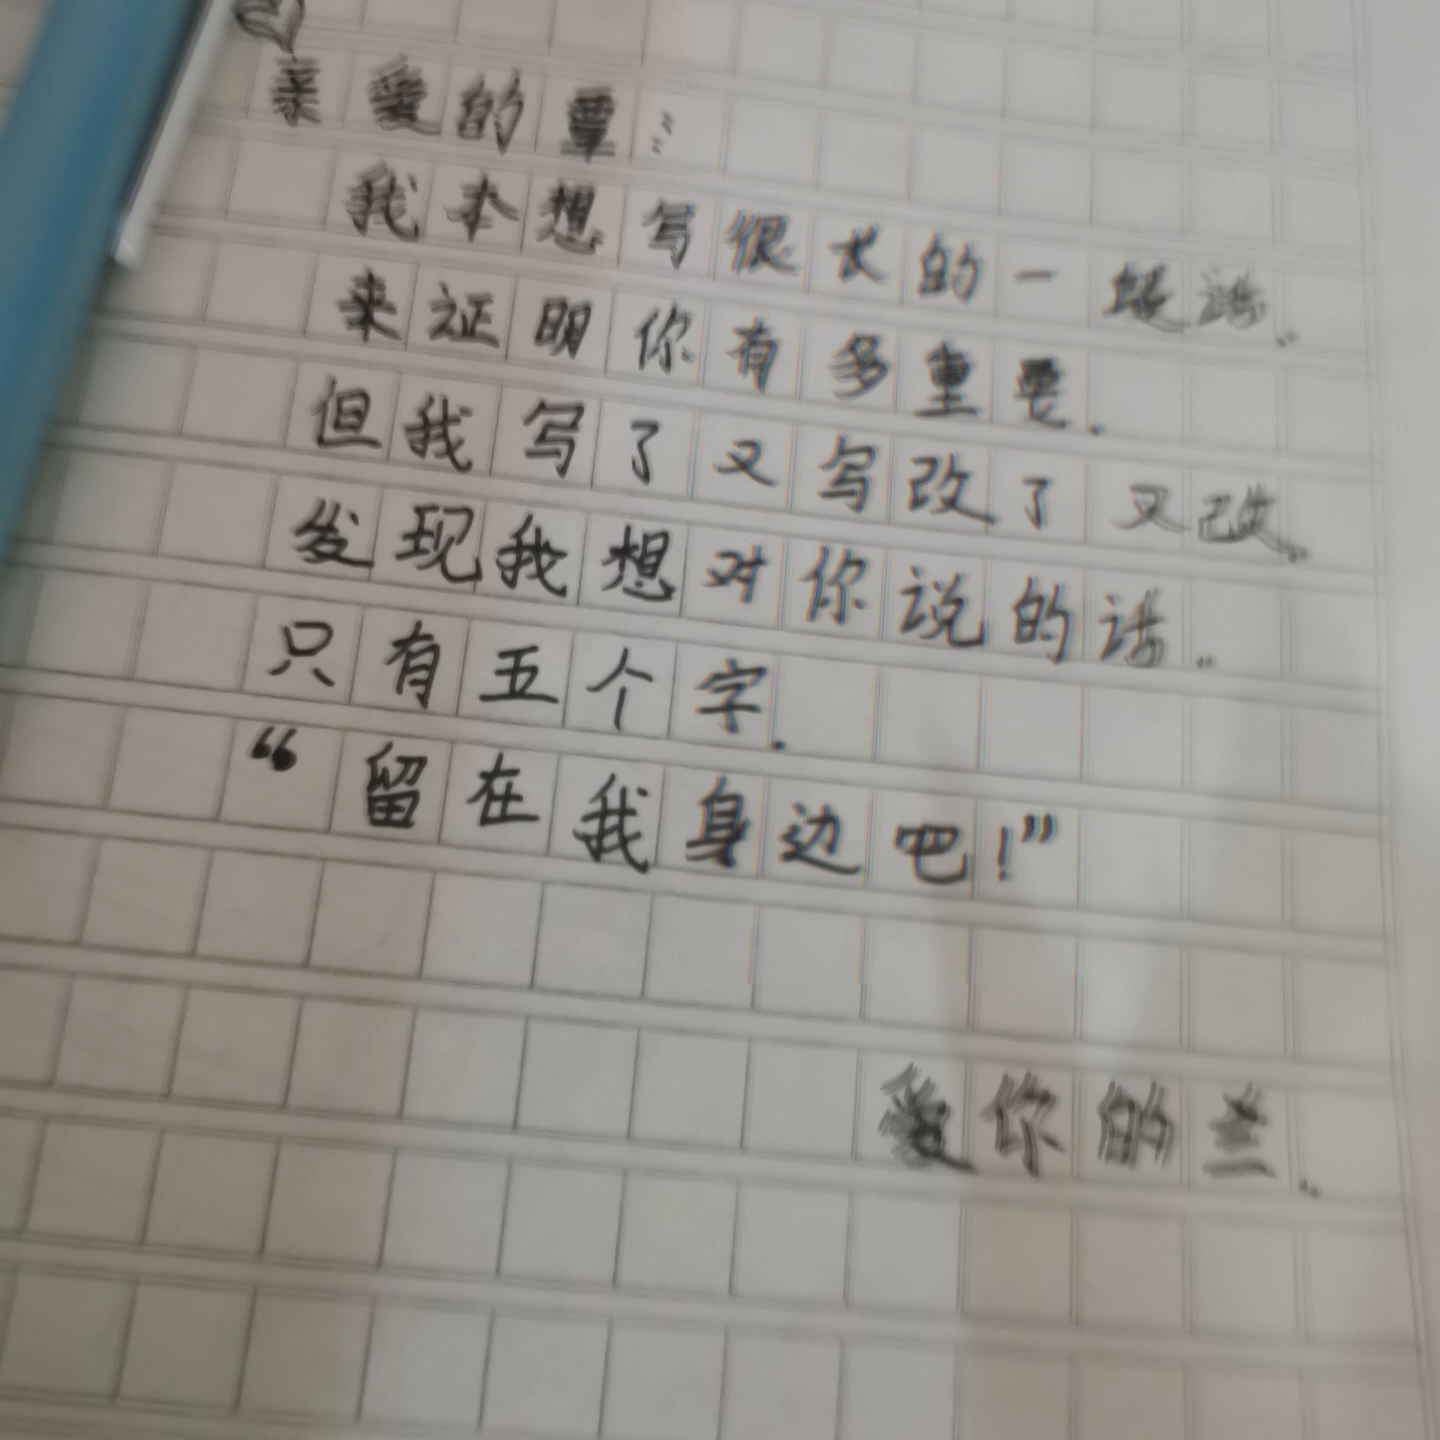 亲爱的覃:
我本想写很长的一段话.
来证明你有多重要.
但我写了又写改了又改.
发现我想对你说的话.
只有五个字.
“留在我身边吧!”
爱你的兰.